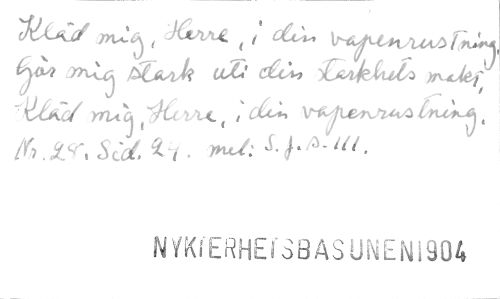 Kläd mig, Herre, i din vapenrustning.
Gör mig stark uti din starkhets makt,
Kläd mig, Herre, i din vapenrustning.
Nr. 28. Sid. 24. mel: S. J. S. 111.
NYKTERHETSBASUNEN1904